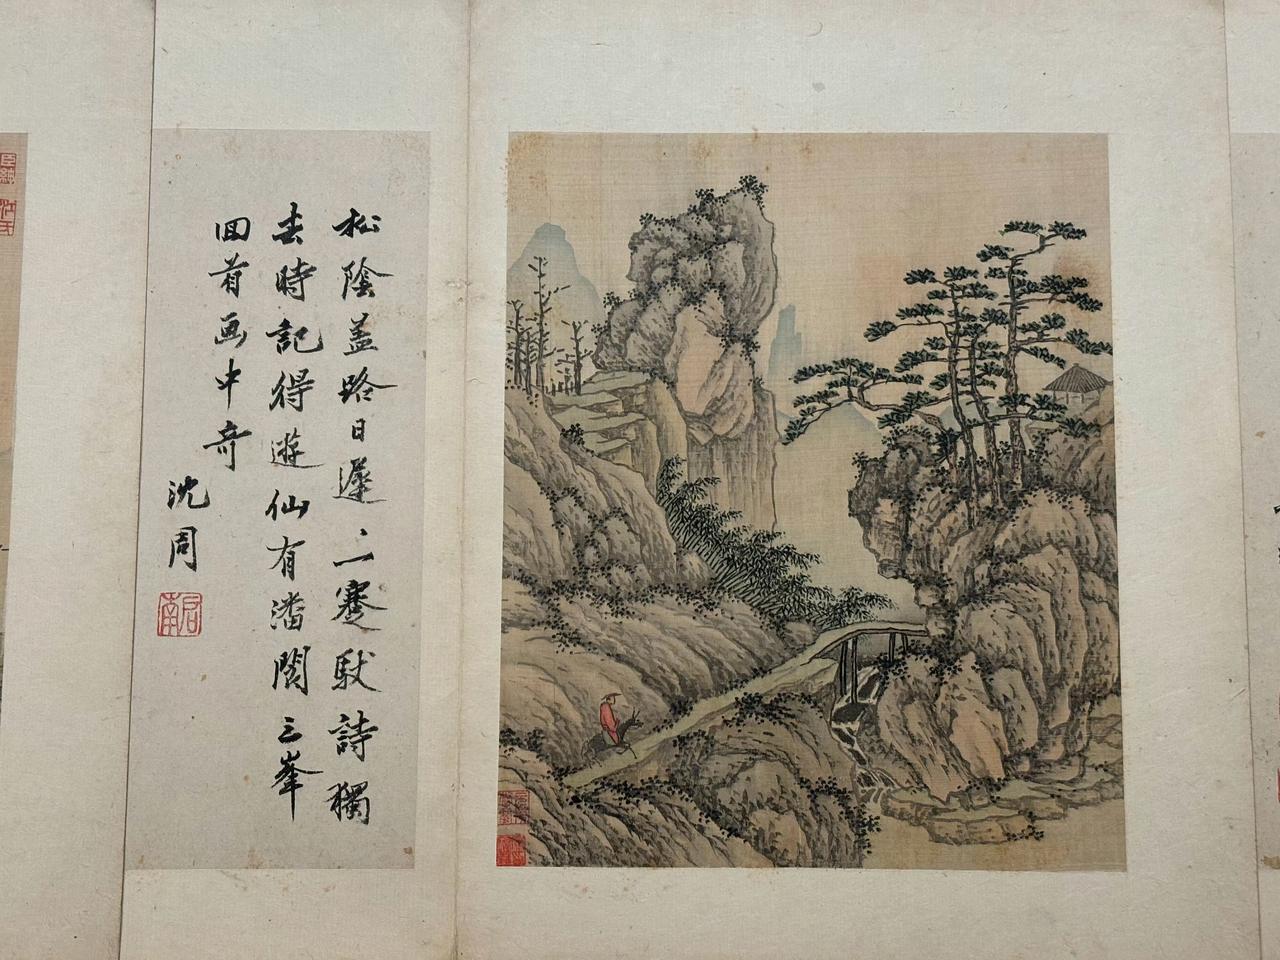 松陰蓋路日遲〻蹇馱詩獨
去時記得遊仙有潘閬三峯
回首画中奇
沈周